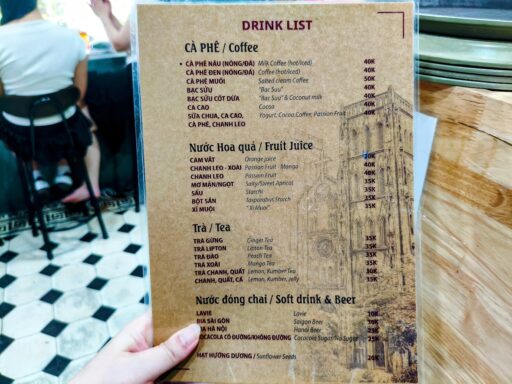 DRINK LIST
CÀ PHÊ / Coffee
CÀ PHÊ NÂU (NÓNG/ĐÁ) Milk Coffee (hot/iced) 40K
CÀ PHÊ ĐEN (NÓNG/ĐÁ) Coffee (hot/iced) 40K
CÀ PHÊ MUỐI Salted cream Coffee 50K
BẠC SỬU "Bac Suu" 40K
BẠC SỬU CỐT DỪA "Bac Suu" & Coconut milk 40K
CA CAO Cocoa 40K
SỮA CHUA, CA CAO, Yogurt, Cocoa, Coffee, Passion Fruit 40K
CÀ PHÊ, CHANH LEO
Nước Hoa quả / Fruit Juice
CAM VẮT Orange juice
CHANH LEO - XOÀI Passion Fruit - Mango 40K
CHANH LEO Passion Fruit 40K
MƠ MẶN/NGỌT Salty/Sweet Apricot 35K
SẤU 35K
BỘT SẮN Starch 35K
XÍ MUỘI "Xi Muoi" 35K
Trà / Tea
TRÀ GỪNG Ginger Tea 35K
TRÀ LIPTON Lipton Tea 35K
TRÀ ĐÀO Peach Tea 35K
TRÀ XOÀI Mango Tea 35K
TRÀ CHANH, QUẤT Lemon, Kumber Tea 30K
CHANH, QUẤT, CÁ Lemon, Kumber, Jelly 25K
Nước đóng chai / Soft drink & Beer
LAVIE Lavie 10K
BIA SÀI GÒN Saigon Beer
HÀ NỘI Hanoi Beer
CÓ ĐƯỜNG/KHÔNG ĐƯỜNG Cocacola Sugar/No Sugar 25K
HẠT HƯỚNG DƯƠNG / Sunflower Seeds 20K